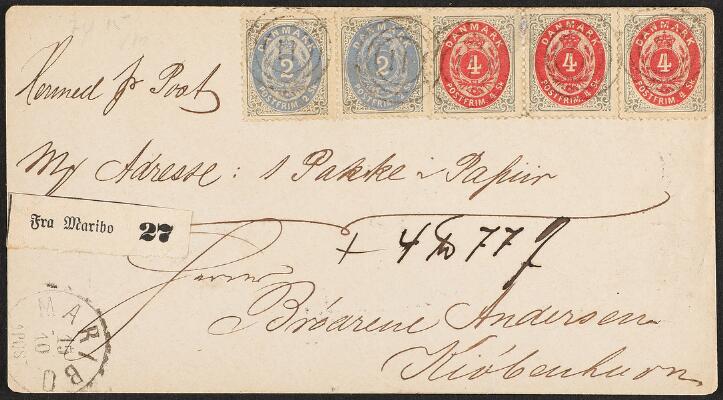 DANMARK 2 POSTFRIM. 2 SK.
DANMARK 2
DANMARK 4 POSTFRIM. 4 SK.
DANMARK 4 POSTFRIM. 4 SK.
DANMARK 4 POSTFRIM. 4 SK.
Hermed pr Post
My Adresse: 1 Pakke i Papiir
Fra Maribo 27
+ 4 77
Herrer
Brödrene Andersen
Kiöbenhavn
MARIBO